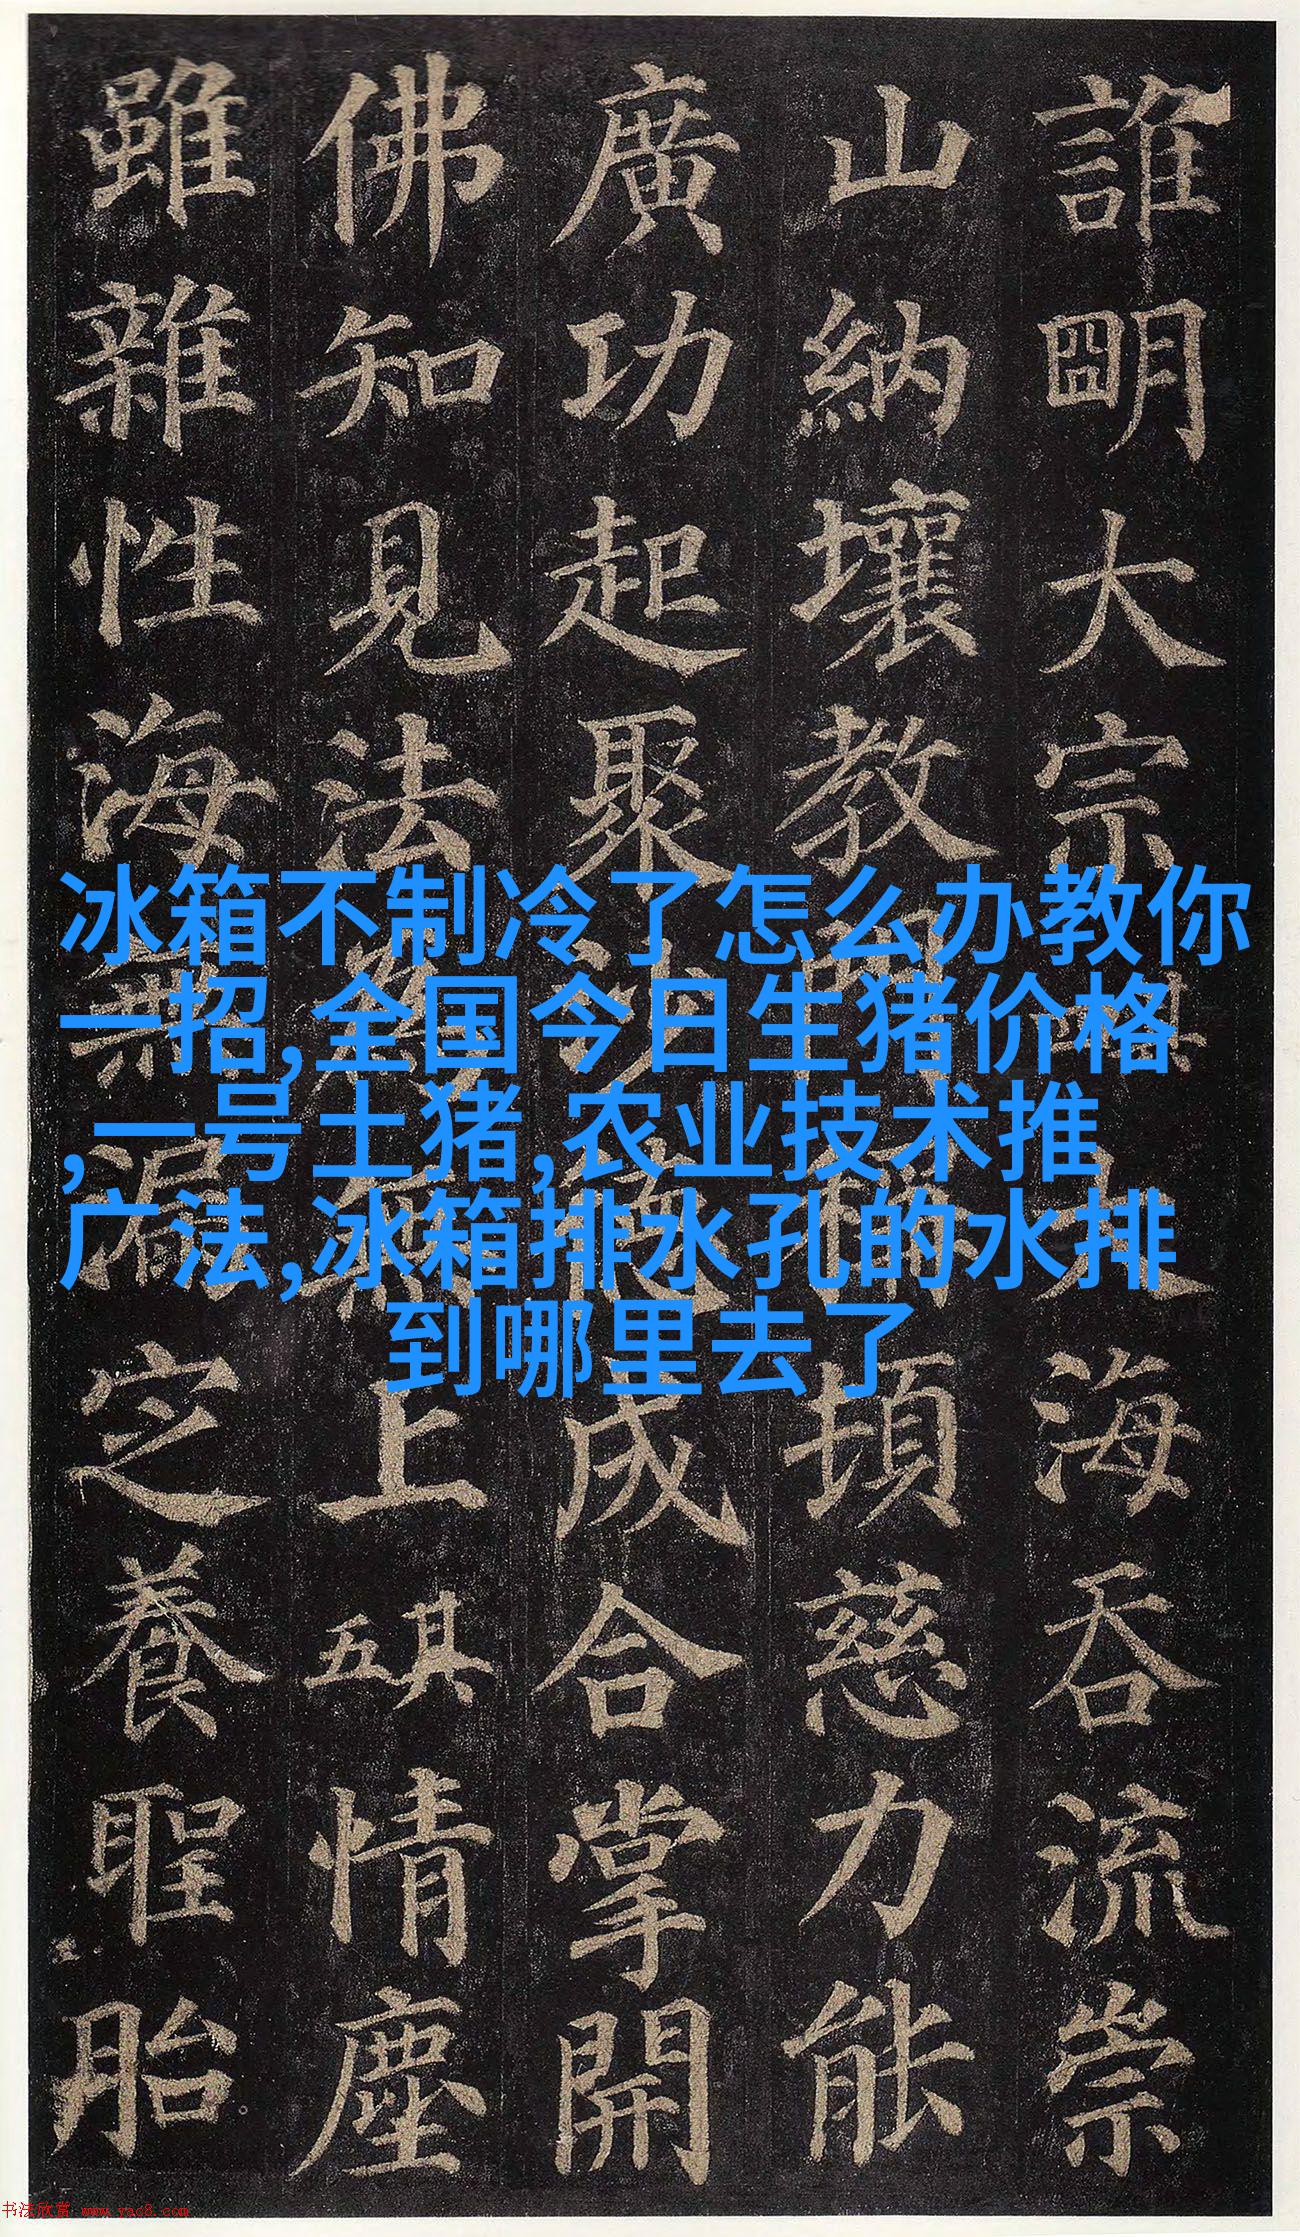 誰明大宗其大海吞流崇
山納壤教門稱頓慈力能
廣功起聚沙德成合掌開
佛知見法為無上其五情塵
雖雜性海無漏定養聖胎
冰箱不制冷了怎么办教你
一招,全国今日生猪价格
,一号土猪,农业技术推
广法,冰箱排水孔的水排
到哪里去了
书法欣赏 www.yac8.com